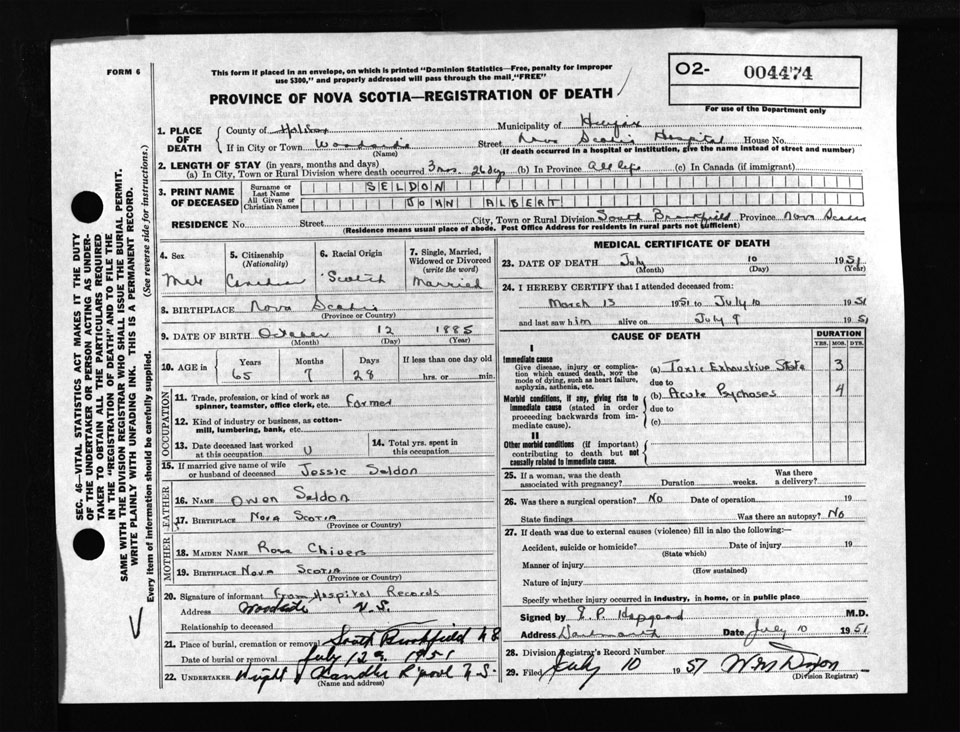 FORM 6
This form if placed in an envelope, on which is printed "Dominion Statistics—Free, penalty for improper
use $300," and properly addressed will pass through the mail, "FREE"
PROVINCE OF NOVA SCOTIA—REGISTRATION OF DEATH
O2- 004474
For use of the Department only
SEC. 46—VITAL STATISTICS ACT MAKES IT THE DUTY
OF THE UNDERTAKER OR PERSON ACTING AS UNDER-
TAKER TO OBTAIN ALL THE PARTICULARS REQUIRED
IN THE "REGISTRATION OF DEATH" AND TO FILE THE
SAME WITH THE DIVISION REGISTRAR WHO SHALL ISSUE THE BURIAL PERMIT.
WRITE PLAINLY WITH UNFADING INK. THIS IS A PERMANENT RECORD.
Every item of information should be carefully supplied. (See reverse side for instructions.)
1. PLACE OF DEATH
County of Halifax Municipality of Halifax
If in City or Town Woodside Street Nova Scotia Hospital House No.
(Name) (If death occurred in a hospital or institution, give the name instead of street and number)
2. LENGTH OF STAY (in years, months and days)
(a) In City, Town or Rural Division where death occurred 3 mos. 26 dys (b) In Province All life (c) In Canada (if immigrant)
3. PRINT NAME OF DECEASED
Surname or Last Name SELDON
All Given or Christian Names JOHN ALBERT
RESIDENCE No. Street City, Town or Rural Division South Brookfield Province Nova Scotia
(Residence means usual place of abode. Post Office Address for residents in rural parts not sufficient)
4. Sex
Male
5. Citizenship
(Nationality)
Canadian
6. Racial Origin
Scotch
7. Single, Married, Widowed or Divorced
(write the word)
Married
8. BIRTHPLACE Nova Scotia
(Province or Country)
9. DATE OF BIRTH October 12 1885
(Month) (Day) (Year)
10. AGE in Years Months Days If less than one day old
65 7 28 hrs. or min.
OCCUPATION
11. Trade, profession, or kind of work as
spinner, teamster, office clerk, etc. Farmer
12. Kind of industry or business, as cotton-
mill, lumbering, bank, etc.
13. Date deceased last worked
at this occupation U
14. Total yrs. spent in
this occupation
15. If married give name of wife
or husband of deceased Jessie Seldon
FATHER
16. NAME Owen Seldon
17. BIRTHPLACE Nova Scotia
(Province or Country)
MOTHER
18. MAIDEN NAME Rose Chivers
19. BIRTHPLACE Nova Scotia
(Province or Country)
20. Signature of informant From Hospital Records
Address Woodside N.S.
Relationship to deceased
21. Place of burial, cremation or removal South Brookfield N S
Date of burial or removal July 12 1951
22. UNDERTAKER Wright Chandler L'pool N.S.
(Name and address)
MEDICAL CERTIFICATE OF DEATH
23. DATE OF DEATH July 10 1951
(Month) (Day) (Year)
24. I HEREBY CERTIFY that I attended deceased from:
March 13 1951 to July 10 1951
and last saw him alive on July 9 1951
CAUSE OF DEATH
DURATION
YRS. MOS. DYS.
I
Immediate cause
Give disease, injury or complica-
tion which caused death, NOT the
mode of dying, such as heart failure,
asphyxia, asthenia, etc.
(a) Toxic Exhaustive State 3
due to
Morbid conditions, if any, giving rise to
immediate cause (stated in order
proceeding backwards from im-
mediate cause).
(b) Acute Psychoses 4
due to
(c)
II
Other morbid conditions (if important)
contributing to death but not
causally related to immediate cause.
25. If a woman, was the death
associated with pregnancy? Duration weeks. Was there
a delivery?
26. Was there a surgical operation? No Date of operation 19
State findings Was there an autopsy? No
27. If death was due to external causes (violence) fill in also the following:—
Accident, suicide or homicide? Date of injury 19
(State which)
Manner of injury
(How sustained)
Nature of injury
Specify whether injury occurred in industry, in home, or in public place
Signed by E. P. Hapgood M.D.
Address Dartmouth Date July 10 1951
28. Division Registrar's Record Number
29. Filed July 10 1951 W M Dixon
(Division Registrar)